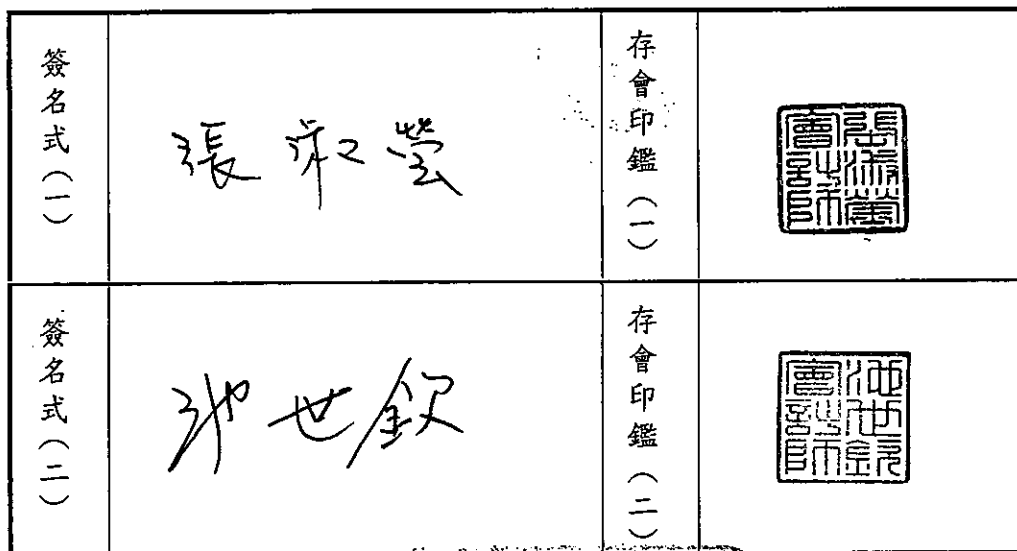 簽名式(一)
張淑瑩
存會印鑑(一)
張淑瑩會計師
簽名式(二)
池世欽
存會印鑑(二)
池世欽會計師